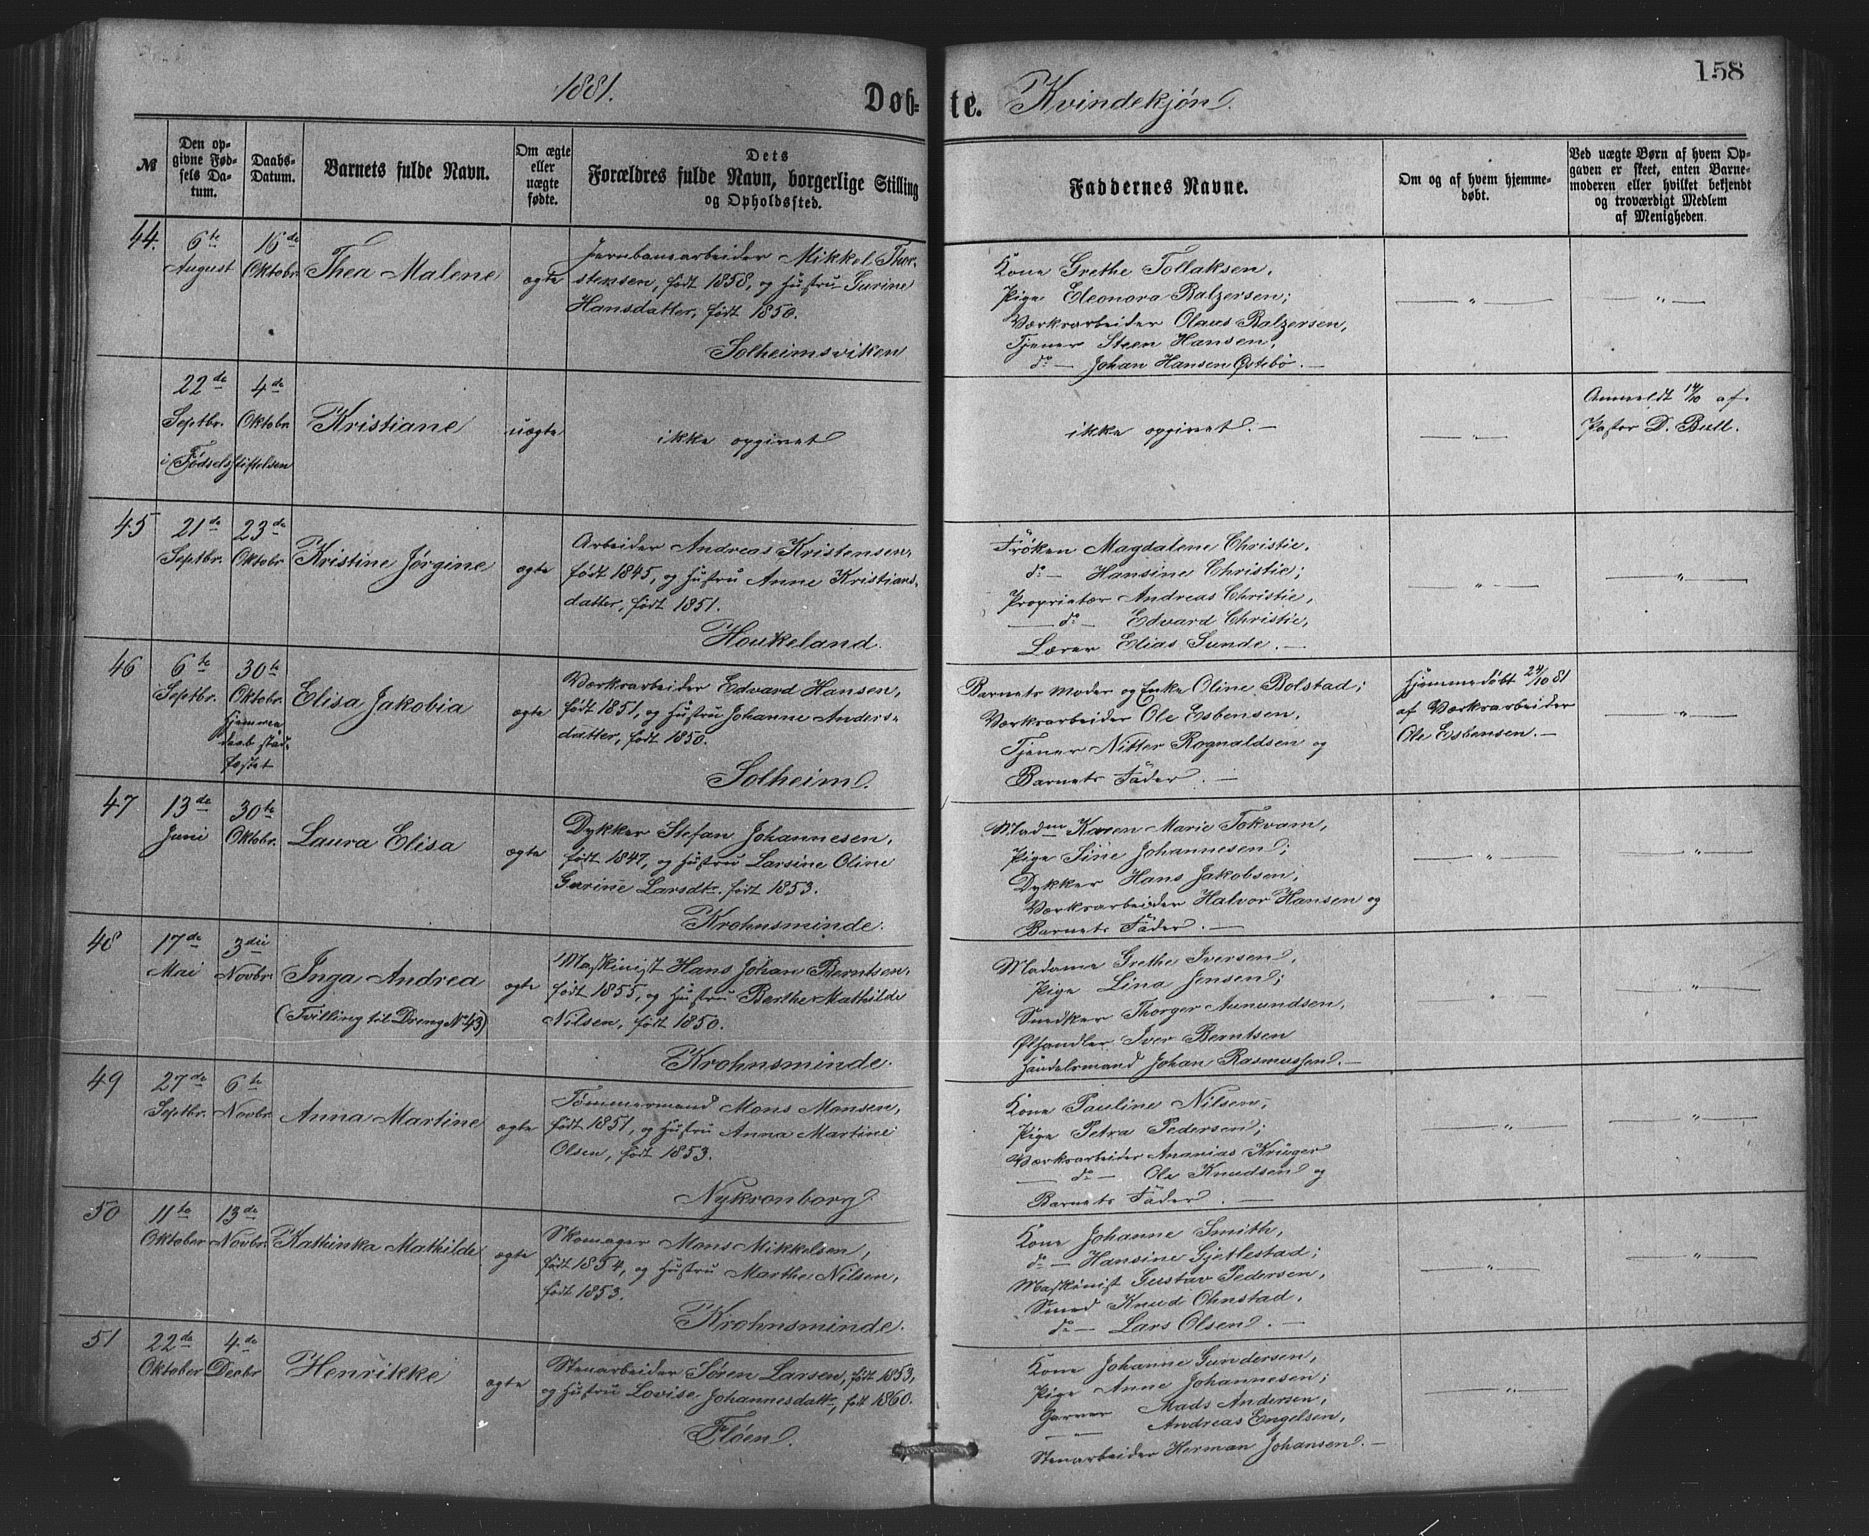 158
1881.
Døbte. Kvindekjøn.
№
Den opgivne Fødsels Datum.
Daabs-Datum.
Barnets fulde Navn.
Om ægte eller uægte fødte.
Dets Forældres fulde Navn, borgerlige Stilling og Opholdssted.
Faddernes Navne.
Om og af hvem hjemmedøbt.
Ved uægte Børn af hvem Opgaven er skeet, enten Barnemoderen eller hvilket bekjendt og troværdigt Medlem af Menigheden.
44.
6te August
16de Oktobr.
Thea Malene
ægte
Jernbanearbeider Mikkel Thor-
stensen, født 1858, og Hustru Gurine
Hansdatter, født 1850.
Solheimsviken
Kone Grethe Tollaksen,
Pige Eleonora Balzersen;
Værksarbeider Olaus Balzersen,
Tjener Steen Hansen,
do — Johan Hansen Østebø. —
— " —
— " —
22de Septbr.
4de Oktobr.
i Fødselsstiftelsen
Kristiane
uægte
ikke opgivet
ikke opgivet. —
— " —
Anmeldt 14/10 af
Pastor D. Bull.
45
21de Septbr.
23de Oktobr
Kristine Jørgine
ægte
Arbeider Andreas Kristensen,
født 1845, og Hustru Anne Kristians-
datter, født 1851.
Houkeland.
Frøken Magdalene Christie,
do — Hansine Christie;
Proprietær Andreas Christie,
— do — Edvard Christie,
Lærer Elias Sunde. —
— " —
— " —
46
6te Septbr.
30te Oktobr.
Hjemme
daab stad-
fæstet
Elisa Jakobia
ægte
Værksarbeider Edvard Hansen,
født 1851, og Hustru Johanne Anders-
datter, født 1850.
Solheim.
Barnets Moder og Enke Oline Bolstad;
Værksarbeider Ole Esbensen,
Tjener Nitter Rognaldsen og
Barnets Fader. —
Hjemmedøbt 24/10 81
af Værksarbeider
Ole Esbensen. —
— " —
47
13de Juni
30te Oktobr.
Laura Elisa
ægte
Dykker Stefan Johannesen,
født 1847, og Hustru Larsine Oline
Gurine Larsdtr. født 1853.
Krohnsminde.
Madm Karen Marie Tokvam,
Pige Sine Johannesen;
Dykker Hans Jakobsen,
Værksarbeider Halvor Hansen og
Barnets Fader. —
— " —
— " —
48
17de Mai
3die Novbr.
Inga Andrea
(Tvilling til Dreng No 43)
ægte
Maskinist Hans Johan Berntsen,
født 1855, og Hustru Berthe Mathilde
Nilsen, født 1850.
Krohnsminde.
Madame Grethe Iversen,
Pige Lina Jensen;
Snedker Thorger Aanundsen,
Ølhandler Iver Berntsen
Handelsmand Johan Rasmussen. —
"
— " —
49
27de Septbr.
6te Novbr.
Anna Martine
ægte
Tømmermand Mons Monsen,
født 1851, og Hustru Anna Martine
Olsen, født 1853.
Nykronborg.
Kone Pauline Nilsen,
Pige Petra Pedersen;
Værksarbeider Ananias Krüger
— do — Ole Knudsen og
Barnets Fader. —
— " —
— " —
50
11te Oktober
13de Novbr.
Kathinka Mathilde
ægte
Skomager Mons Mikkelsen,
født 1854, og Hustru Marthe Nilsen,
født 1853.
Krohnsminde.
Kone Johanne Smith,
do — Hansine Gjetlestad;
Maskinist Gustav Pedersen,
Smed Knud Ohnstad,
do — Lars Olsen. —
— " —
— " —
51
22de Oktober
4de Decbr
Henrikke
ægte
Stenarbeider Søren Larsen, født 1853,
og Hustru Lovise Johannesdattr, født 1860.
Fløen.
Kone Johanne Gundersen,
Pige Anne Johannesen;
Garver Mads Andersen,
— " — Andreas Engelsen,
Stenarbeider Herman Johansen. —
— " —
— " —